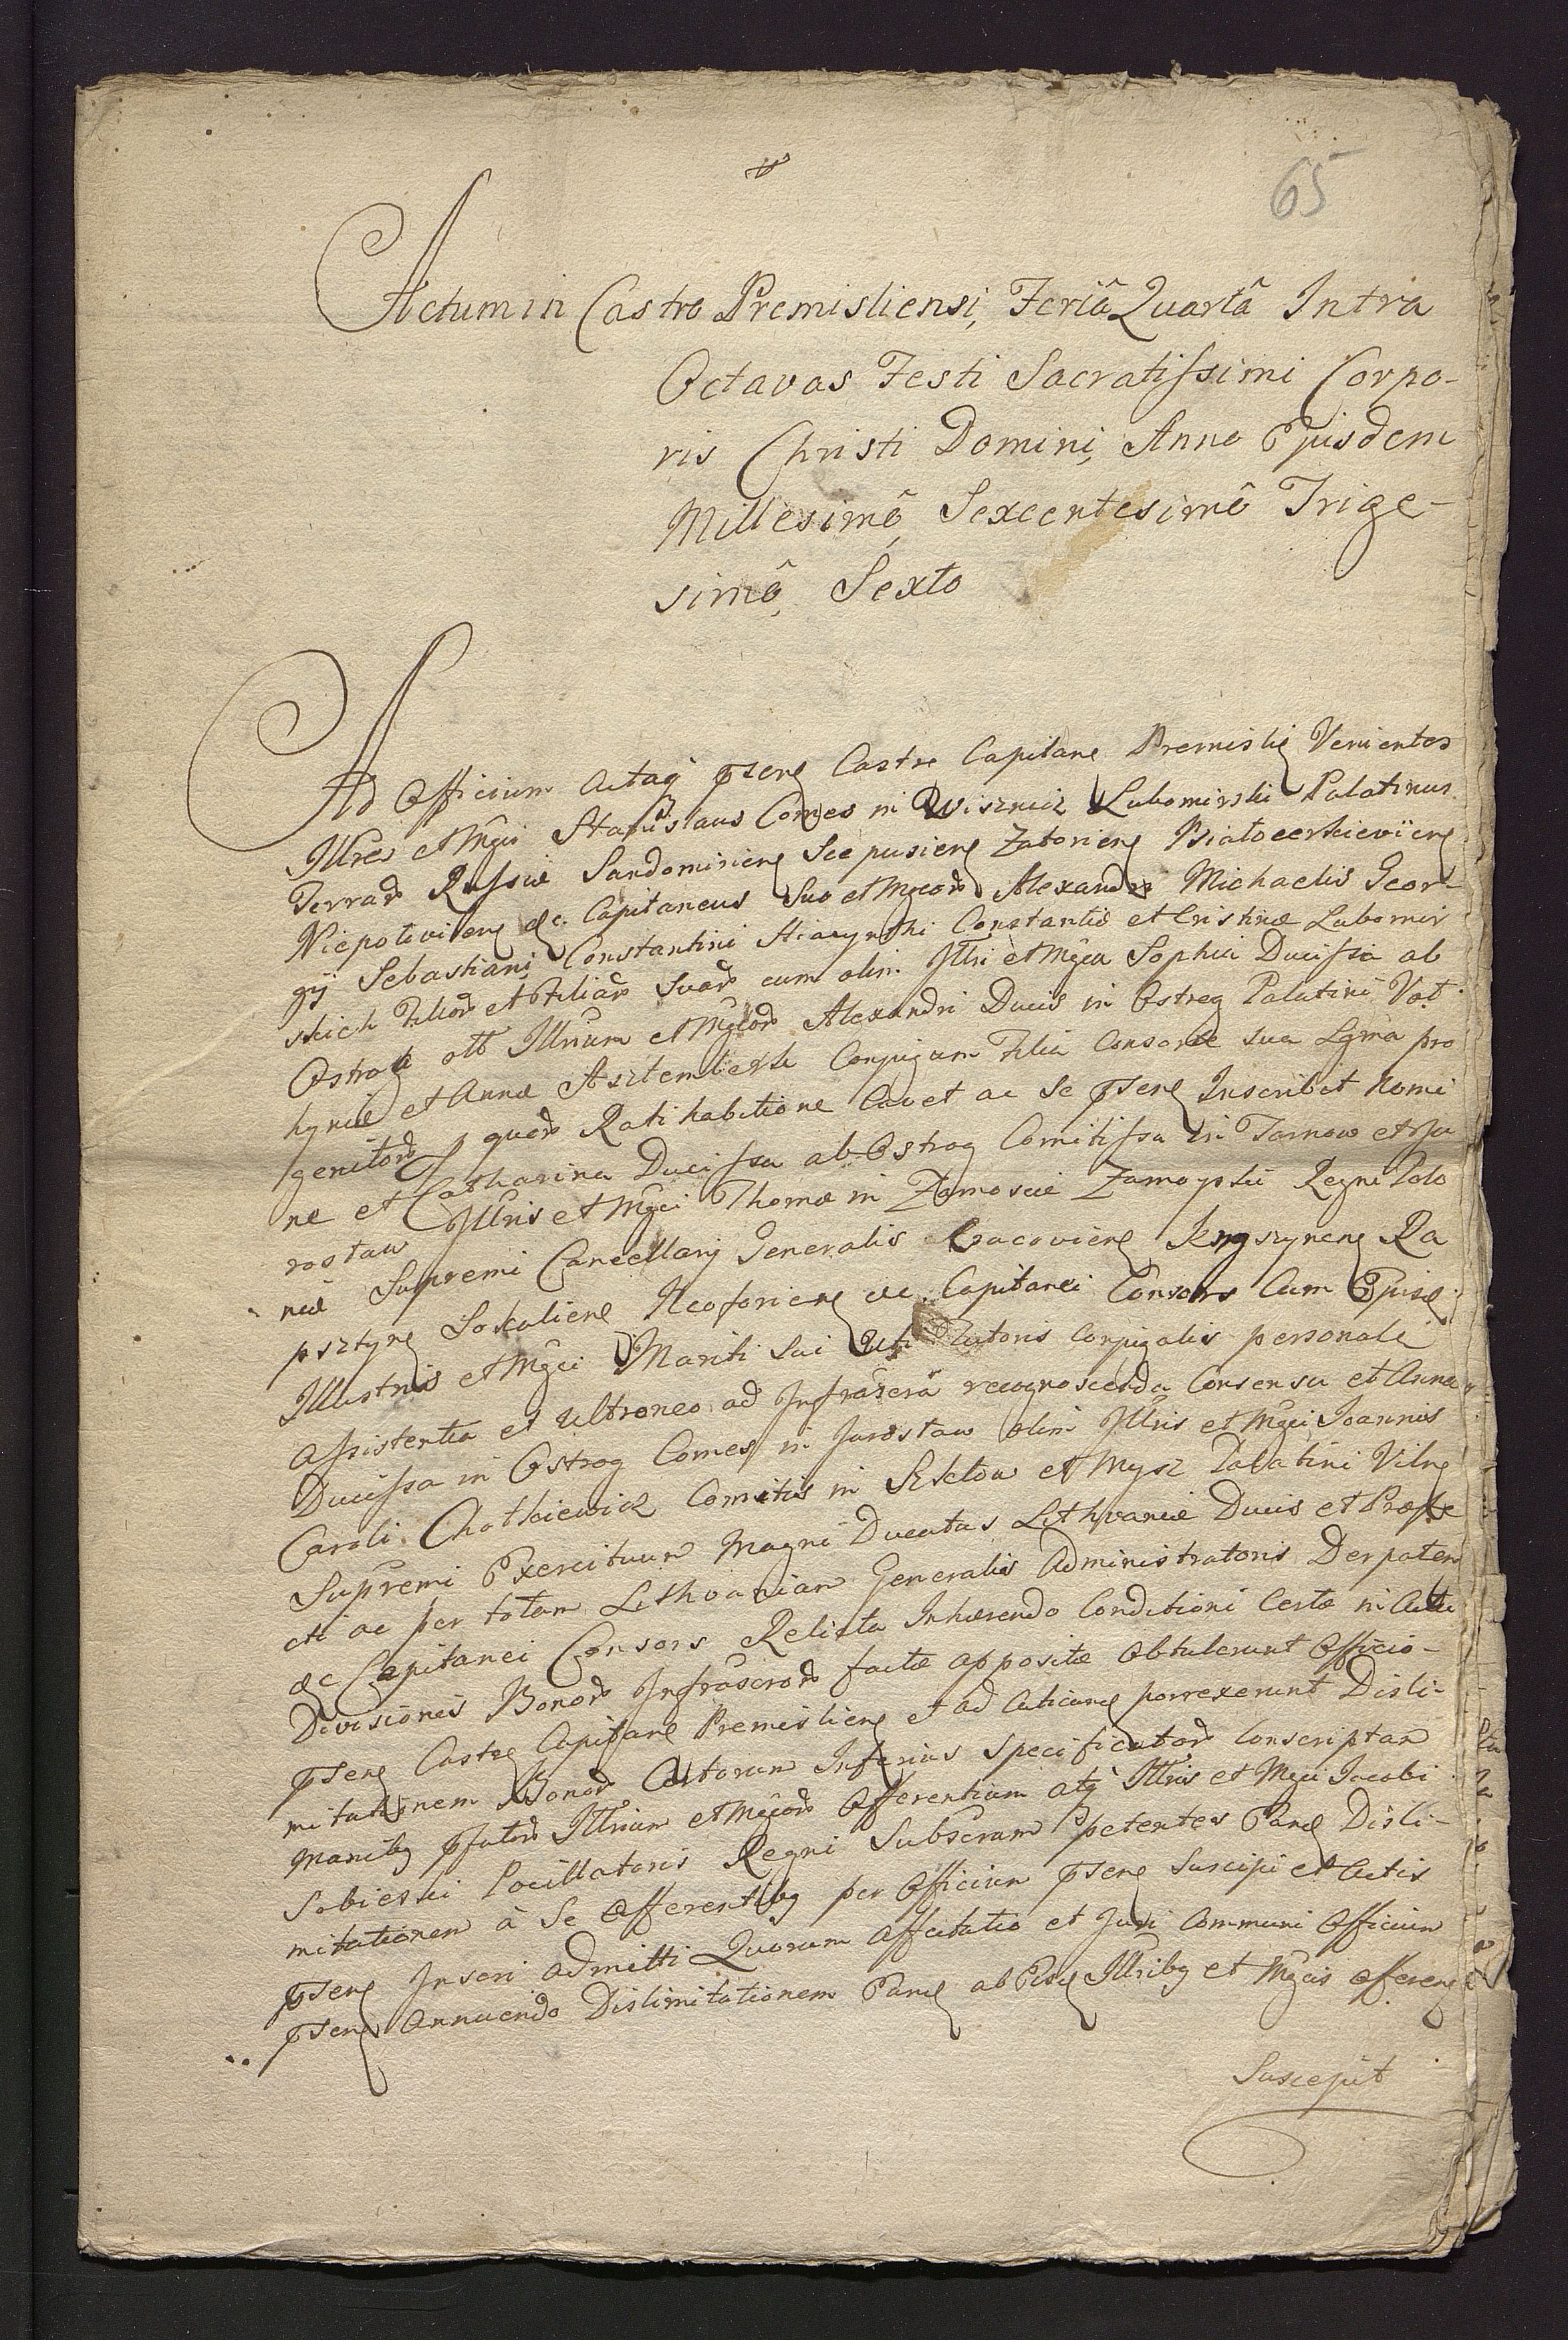 65
Actum in Castro Premisliensi, Feriâ Quartâ Intra
Octavas Festi Sacratissimi Corpo-
ris Christi Domini, Anno Ejusdem
Millesimô, Sexcentesimô Trige-
simô, Sexto
Ad Officium Actaq pseng Castre Capitane Premislie Venientes
Illres et Mgci Stanislaus Comes in Wisznicz Lubomirski Palatinus
Terrar Russiæ Sandomiriens Scepusiens Zatoriens Białocerkieviens
Niepołoviens &c. Capitaneus Suo et Mgcor Alexandri Michaelis Geor-
gij Sebastiani Constantini Hiacynthi Constantiæ et Cristinæ Lubomir
skich Filior et Filiar Suar cum olim Illri et Mgca Sophia Ducissa ab
Ostrog olim Illrium et Mgcor Alexandri Ducis in Ostrog Palatini Vol
hyniæ et Annæ Asztemberk Conjugum Filia Consorte sua Lgma pro
genitor quor Ratihabitione Cavet ac Se psens Inscribit Nomi
ne et Catharina Ducissa ab Ostrog Comitissa in Tarnow et Ja
rosław Illris et Mgci Thomæ in Zamoscie Zamoyski Regni Polo
niæ Supremi Cancellarij Generalis Cracoviens Knyszynens Ra
psztyns Sokaliens Neoforiens &c. Capitanei Consors Cum Ejusd
Illustris et Mgci Mariti Sui Uti Tutoris Conjugalis personali
Assistentia et Ultroneo ad Infrascra recognoscenda Consensu et Anna
Ducissa in Ostrog Comes in Jarosław olim Illris et Mgci Joannis
Caroli Chotkiewicz Comitis in Szkłow et Mysz Palatini Vilne
Supremi Exercituum Magni Ducatus Lithvaniæ Ducis et Præfe
cti ac per totam Lithvaniam Generalis Administratoris Derpaten
&c Capitanei Consors Relicta Inhærendo Conditioni Certæ in Actu
Divisionis Bonor Infrascror factæ appositæ Obtulerunt Officio
psens Castre Capitane Premisliens et ad Acticand porrexerunt Disli-
mitationem Bonor Certorum Inferius Specificator Conscriptam
manibq pfator Illrium et Mgcor Offerentium atq Illris et Mgci Jacobi
Sobieski Pocillatoris Regni Subscram petentes Pand Disli-
mitationem à Se Offerentibq per Officium psens Suscipi et Actis
psens Inseri admitti Quorum Affectatio et Juri Communi Officium
psens Annuendo Dislimitationem Pand ab Eisd Illribq et Mgcis offerens
Suscepit